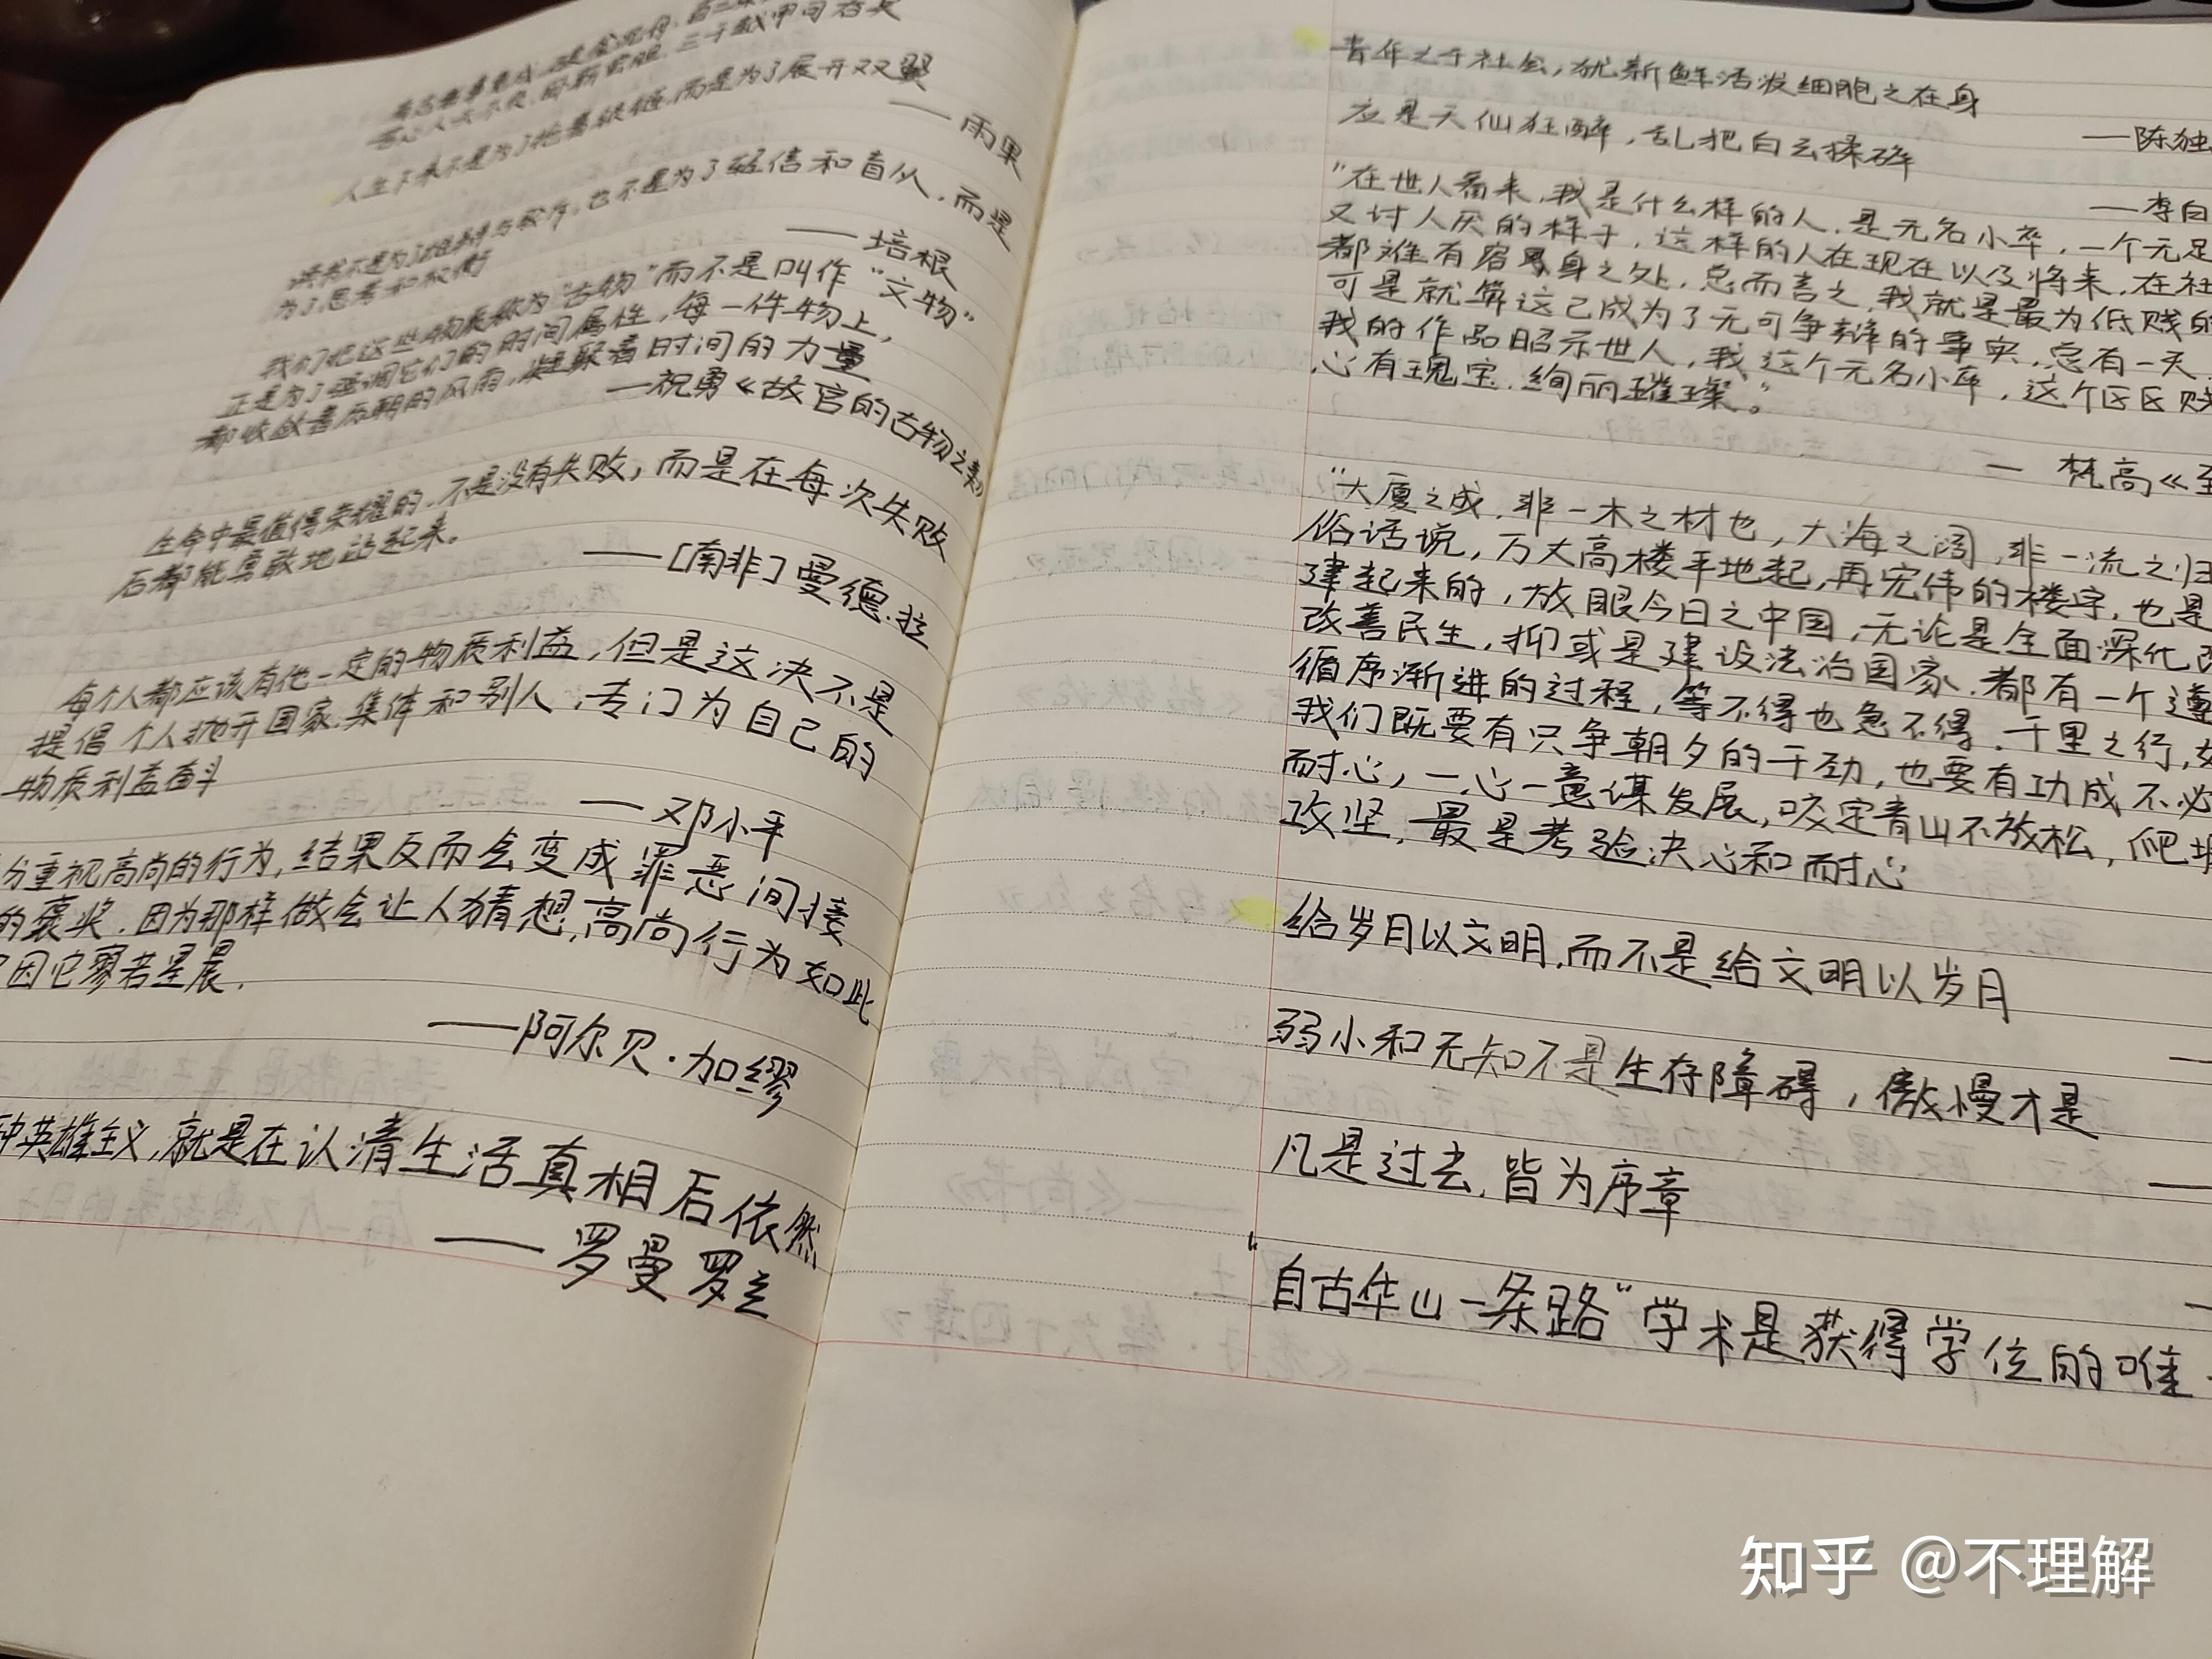 人生下来不是为了拖着锁链,而是为了展开双翼
——雨果
读书不是为了雄辩与驳斥,也不是为了轻信和盲从,而是
为了思考和权衡
——培根
我们把这些物质称为“古物”而不是叫作“文物”
正是为了强调它们的时间属性,每一件物上,
都收敛着历朝的风雨,凝聚着时间的力量
—祝勇《故宫的古物之美》
生命中最值得荣耀的,不是没有失败,而是在每次失败
后都能勇敢地站起来。
——[南非]曼德.拉
每个人都应该有他一定的物质利益,但是这决不是
提倡个人抛开国家.集体和别人,专门为自己的
物质利益奋斗
——邓小平
分重视高尚的行为,结果反而会变成罪恶间接
的褒奖.因为那样做会让人猜想,高尚行为如此
因它寥若星晨.
——阿尔贝·加缪
种英雄主义,就是在认清生活真相后依然
——罗曼罗兰
青年之于社会,犹新鲜活泼细胞之在身
——陈独
应是天仙狂醉,乱把白云揉碎
——李白
“在世人看来,我是什么样的人.是无名小卒,一个无足
又讨人厌的样子,这样的人在现在以及将来,在社
都难有容身之处,总而言之,我就是最为低贱的
可是就算这已成为了无可争辩的事实,总有一天,
我的作品昭示世人,我这个无名小卒,这个区区贱
心有瑰宝.绚丽璀璨。”
— 梵高《至
“大厦之成.非一木之材也,大海之阔,非一流之归
俗话说,万丈高楼平地起,再宏伟的楼宇,也是
建起来的,放眼今日之中国,无论是全面深化改
改善民生,抑或是建设法治国家.都有一个遵
循序渐进的过程,等不得也急不得.千里之行,始
我们既要有只争朝夕的干劲,也要有功成不必
耐心,一心一意谋发展,咬定青山不放松,爬坡
攻坚,最是考验决心和耐心
给岁月以文明.而不是给文明以岁月
弱小和无知不是生存障碍,傲慢才是
凡是过去,皆为序章
“自古华山一条路”学术是获得学位的唯一
知乎 @不理解